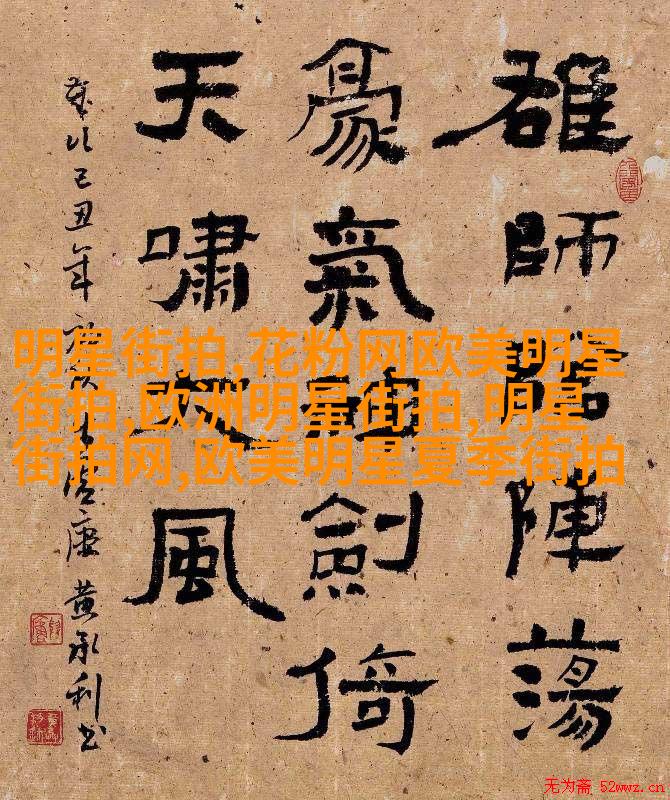 雄師陣蕩
豪氣劍倚
天嘯風
歲次己丑年
黄承利书
明星街拍,花粉网欧美明星
街拍,欧洲明星街拍,明星
街拍网,欧美明星夏季街拍
无为斋 52wwz.cn